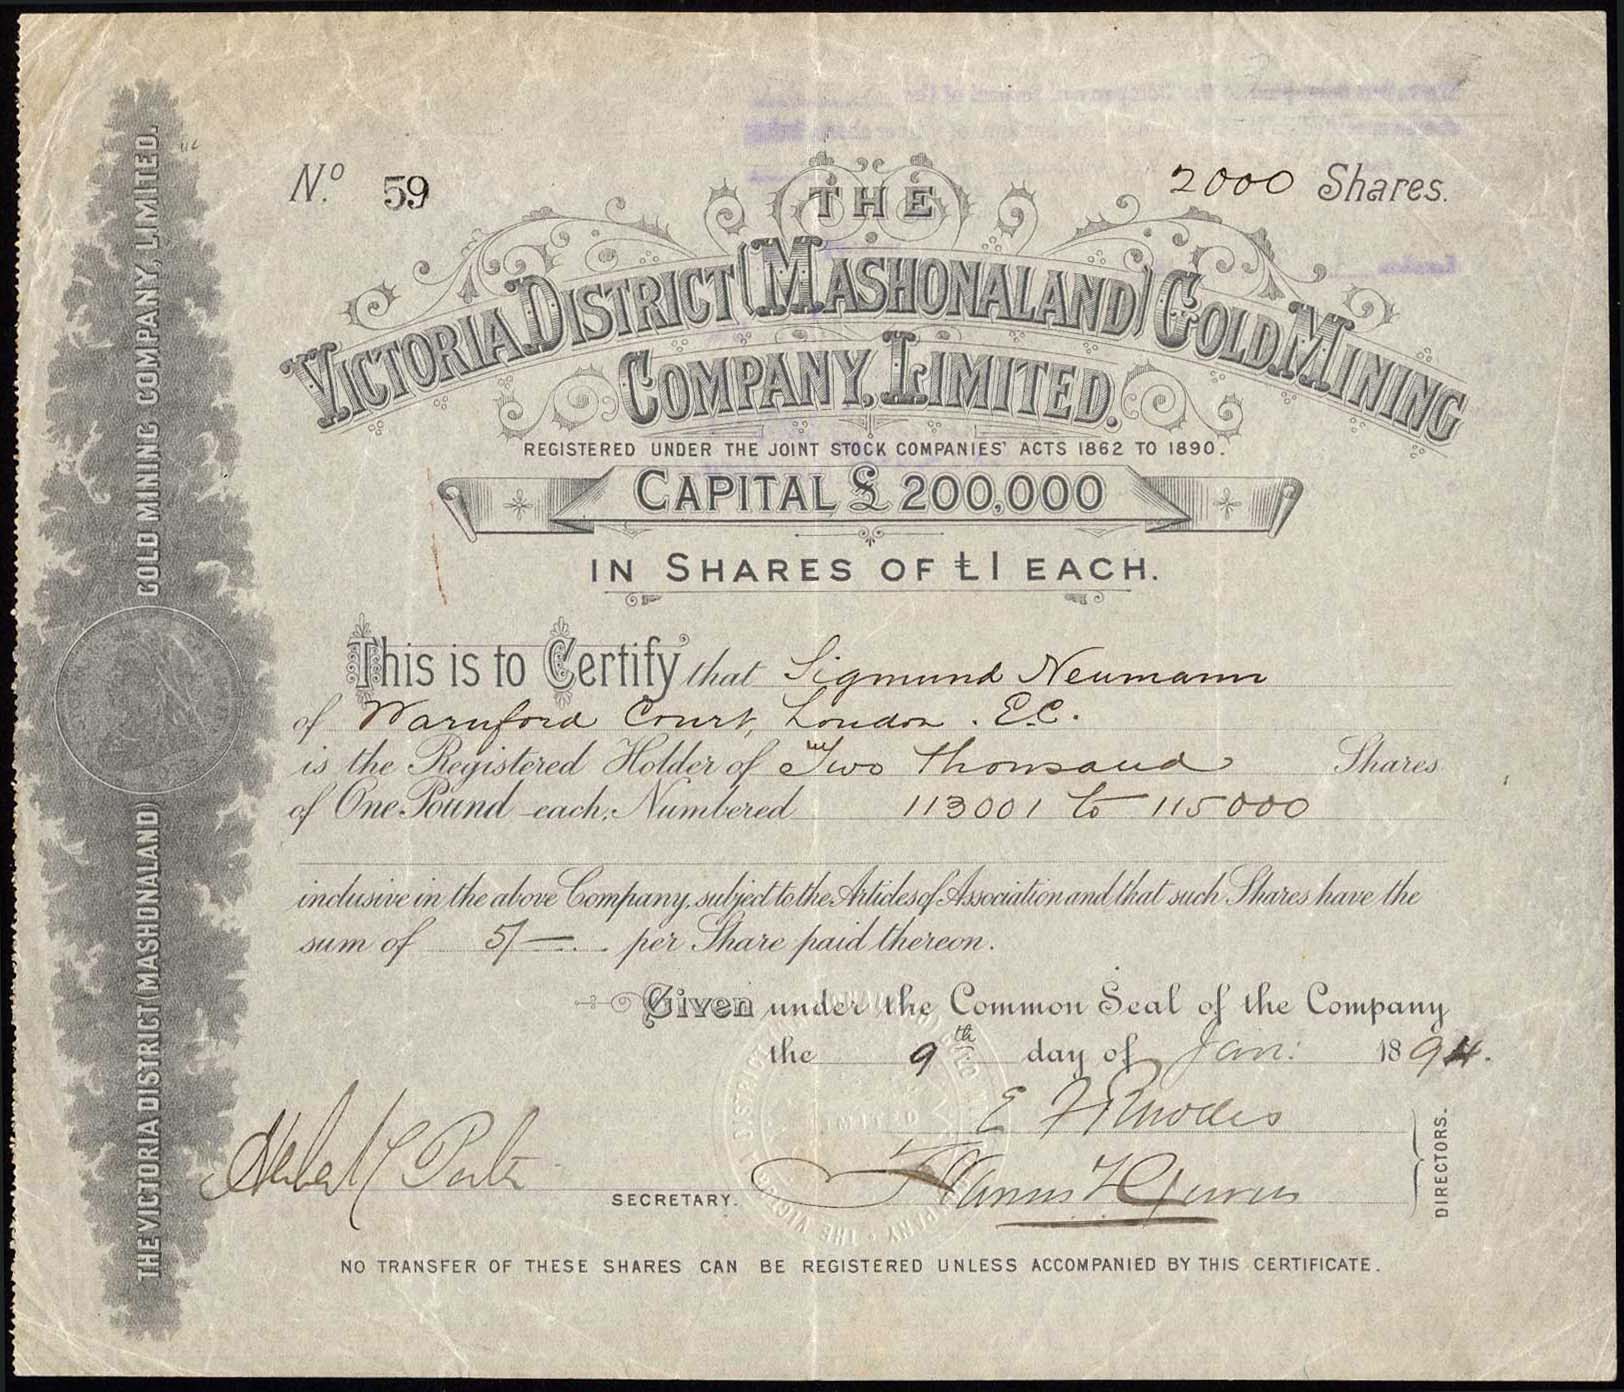 No. 59
2000 Shares.
THE
VICTORIA DISTRICT (MASHONALAND) GOLD MINING
COMPANY, LIMITED.
REGISTERED UNDER THE JOINT STOCK COMPANIES' ACTS 1862 TO 1890.
CAPITAL £200,000
IN SHARES OF £1 EACH.
This is to Certify that Sigmund Neumann
of Warnford Court, London. E.C.
is the Registered Holder of Two thousand Shares
of One Pound each, Numbered 113001 to 115000
inclusive in the above Company, subject to the Articles of Association and that such Shares have the
sum of 5/— per Share paid thereon.
Given under the Common Seal of the Company
the 9th day of Jan: 1894.
E F Rhodes
SECRETARY.
DIRECTORS.
NO TRANSFER OF THESE SHARES CAN BE REGISTERED UNLESS ACCOMPANIED BY THIS CERTIFICATE.
THE VICTORIA DISTRICT (MASHONALAND) GOLD MINING COMPANY, LIMITED.